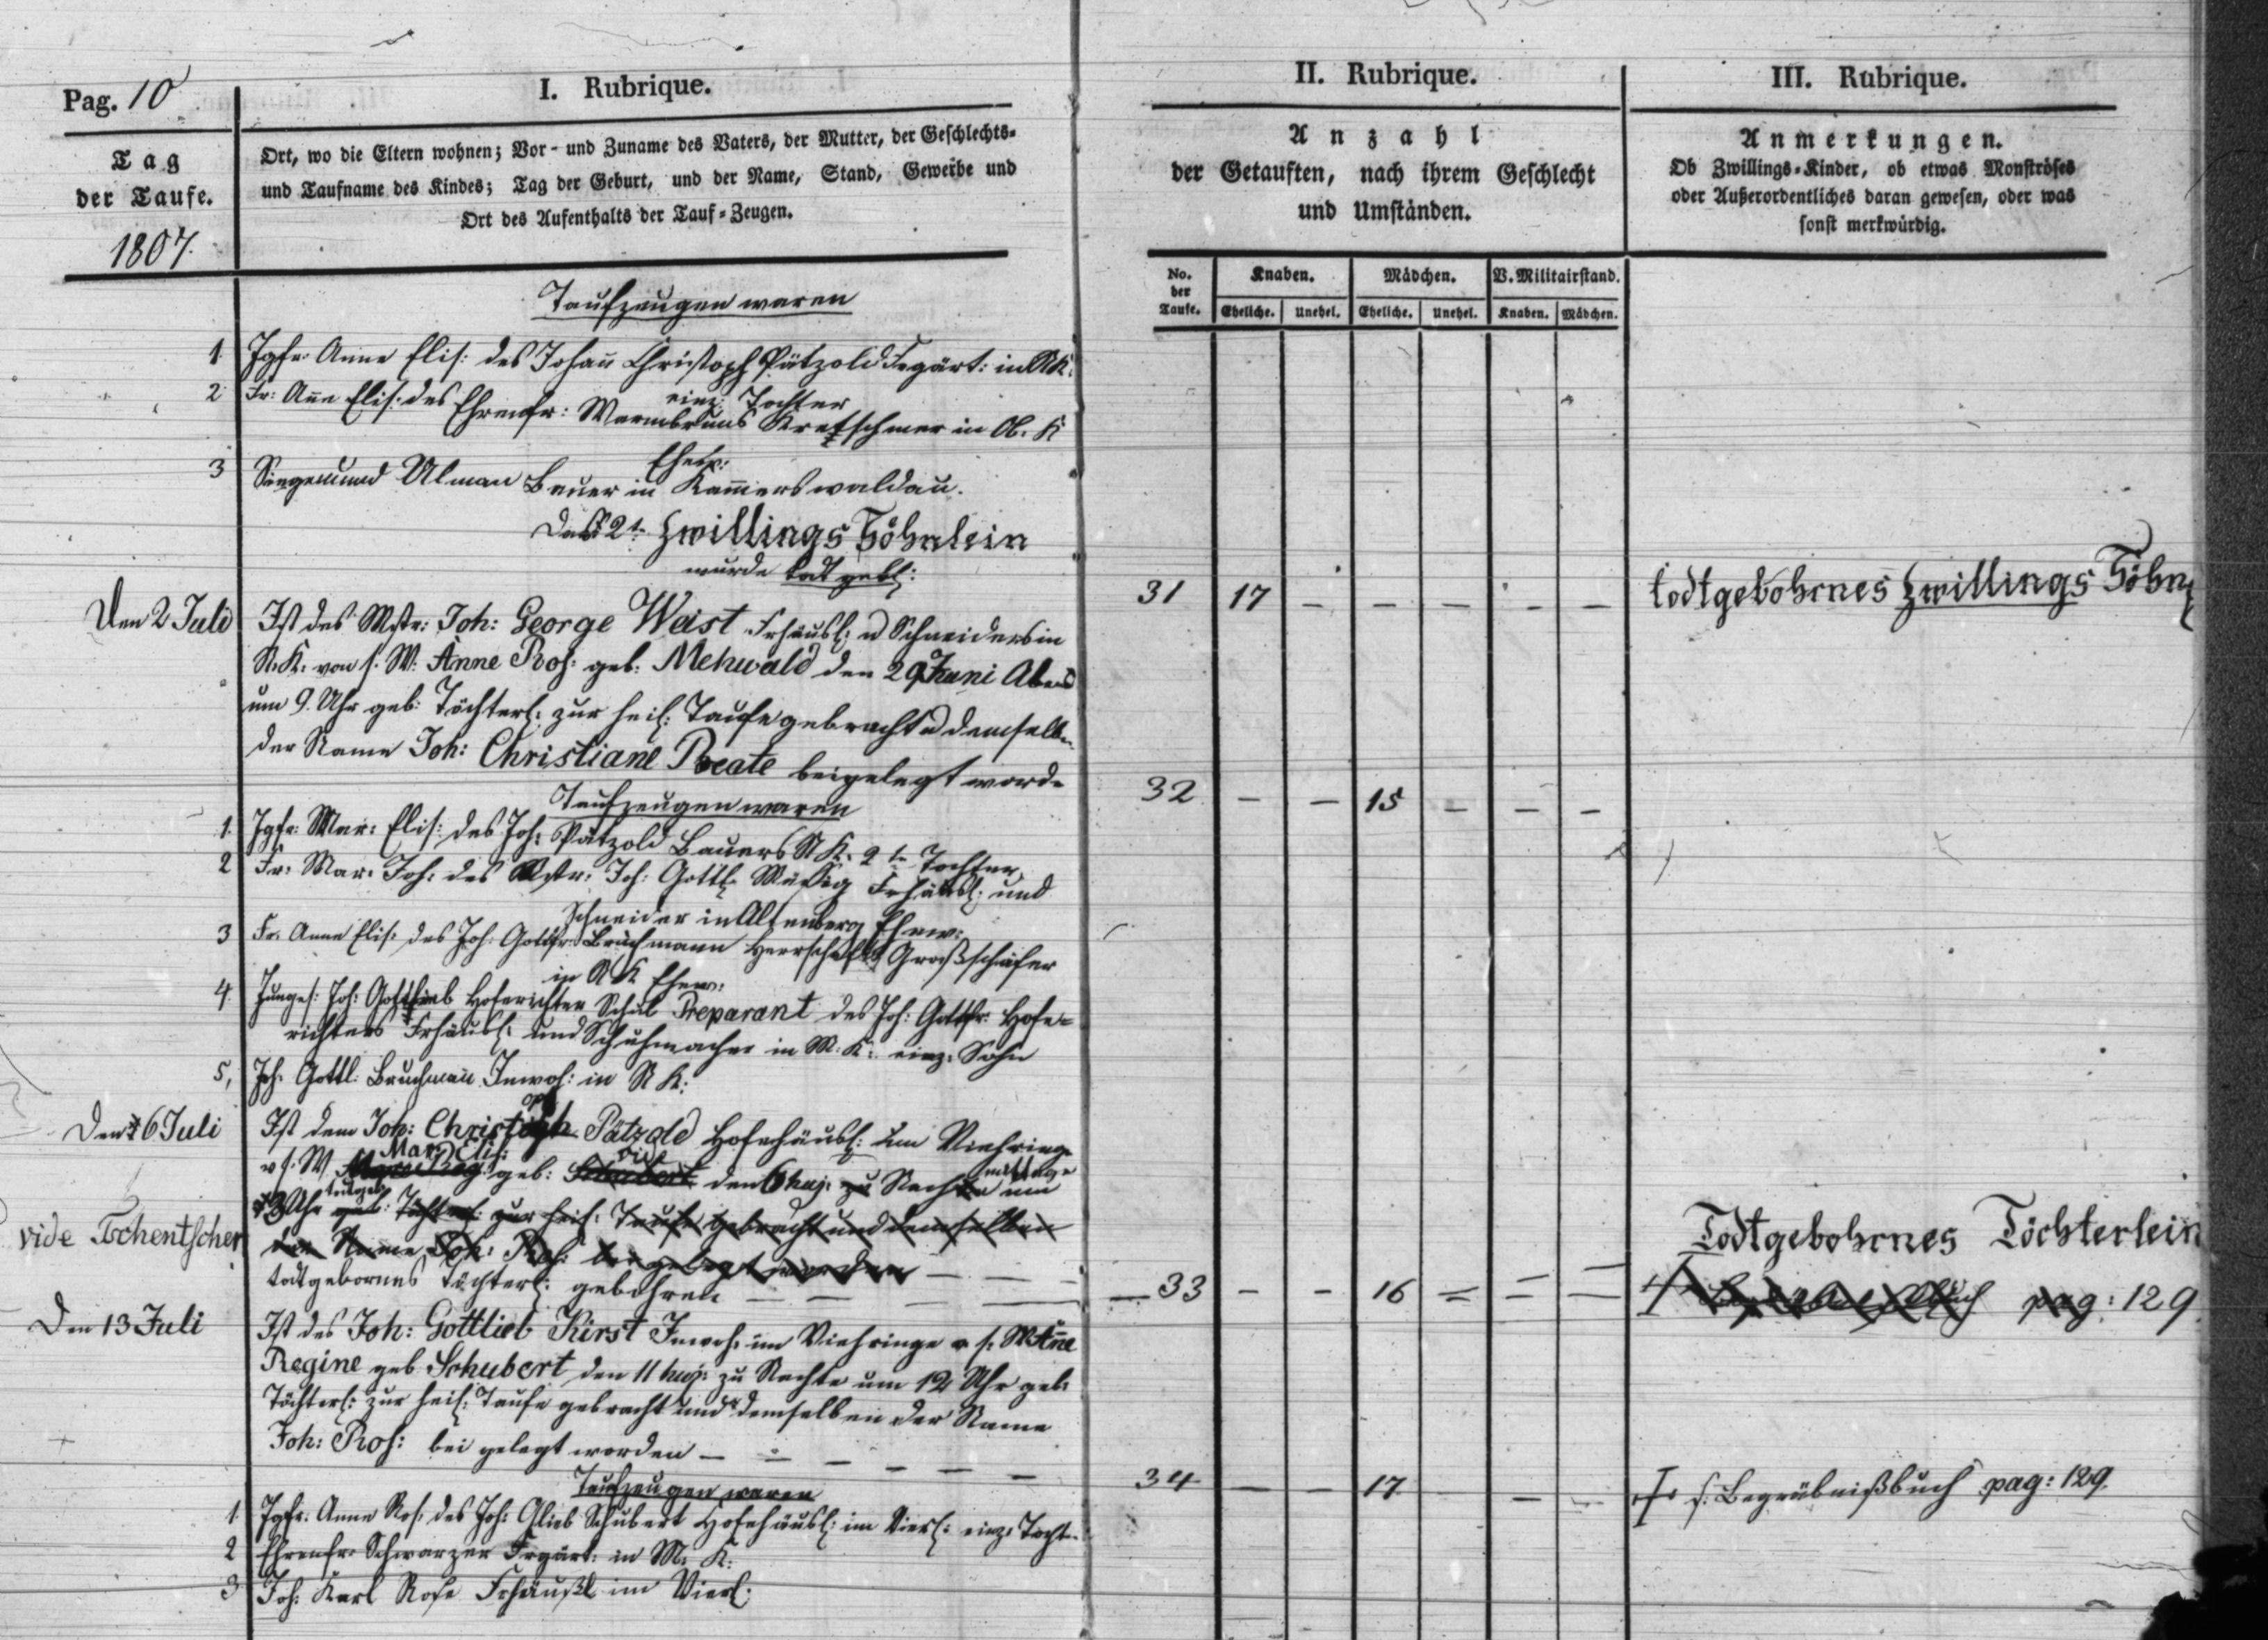 Pag. 10
Tag
der Taufe.
1807.
I. Rubrique.
Ort, wo die Eltern wohnen; Vor- und Zuname des Vaters, der Mutter, der Geschlechts-
und Taufname des Kindes; Tag der Geburt, und der Name, Stand, Gewerbe und
Ort des Aufenthalts der Tauf-Zeugen.
II. Rubrique.
Anzahl
der Getauften, nach ihrem Geschlecht
und Umständen.
III. Rubrique.
Anmerkungen.
Ob Zwillings-Kinder, ob etwas Monströses
oder Außerordentliches daran gewesen, oder was
sonst merkwürdig.
No. der Taufe.
Knaben.
Mädchen.
V. Militairstand.
Eheliche. Unehel. Eheliche. Unehel. Knaben. Mädchen.
Taufzeugen waren
1. Jgfr: Anne Elis: des Johañ Christoph Pätzold Frgärt: in NK.
einz: Tochter
2 Fr: Añe Elis: des Ehrenfr: Warmbruns Kretschmer in Ob. K
Ehew:
3 Siegemund Ulman Bauer in Kam̃erswaldau.
Das 2te Zwillings Söhnlein
wurde todt geb:
31 17 – – – – – todtgebohrnes Zwillings Söhnl
Den 2 Juli Ist des Mstr: Joh: George Weist Frhäusl: u Schneiders in
N.K. von s. W. Anne Ros: geb: Mehwald den 29 Juni Abend
um 9. Uhr geb: Töchterl: zur heil: Taufe gebracht u demselbn
der Name Joh: Christiane Beate beigelegt worde
32 – – 15 – – –
Taufzeugen waren
1. Jgfr: Mar: Elis: des Joh: Pätzold Bauers N K. 2te Tochter,
2 Fr: Mar: Joh: des Mstr: Joh: Gottl: Frhäusl: und
Schneider in Altenberg Ehew:
3 Fr. Anne Elis: des Joh: Gottfr: Bruchmann Herrschaftl Großschäfer
in N K Ehew:
4. Jungges: Joh: Gottlieb Hoferichter Schul Preparant des Joh: Gottfr: Hofe-
richters Frhäusl: und Schuhmacher in M. K: einz: Sohn
5, Joh: Gottl: Bruchmañ Inwoh: in N K:
Den 6 Juli Ist dem Joh: Christoph Pätzold Hofehäusl: im Viehringe
v s. W Mar: Elis: geb: vide Schubert den 6 huj: zu Nachmittage um
3 Uhr todtgeb: Töchterl: zur heil: Taufe gebracht und demselben
vide Tschentscher
der Name Joh: Ros: beigelegt worden
todtgebornes Töchterl: gebohren
33 – – 16 – – – Todtgebohrnes Töchterlein
pag: 129.
Den 13 Juli Ist des Joh: Gottlieb Kirst Inwoh: im Viehringe v s. W Añe
Regine geb Schubert den 11 huj: zu Nachte um 12 Uhr geb:
Töchterl: zur heil: Taufe gebracht und demselben der Name
Joh: Ros: bei gelegt worden
34 – – 17 – – ✝ s. Begräbnißbuch pag: 129.
Taufzeugen waren
1. Jgfr: Anne Ros: des Joh: Glieb Schubert Hofehäusl: im Vierl: einz: Tocht.
2 Ehrenfr: Schwarzer Frgärt: in M. K:
3 Joh: Karl Rose Frhäusl im Vierl: